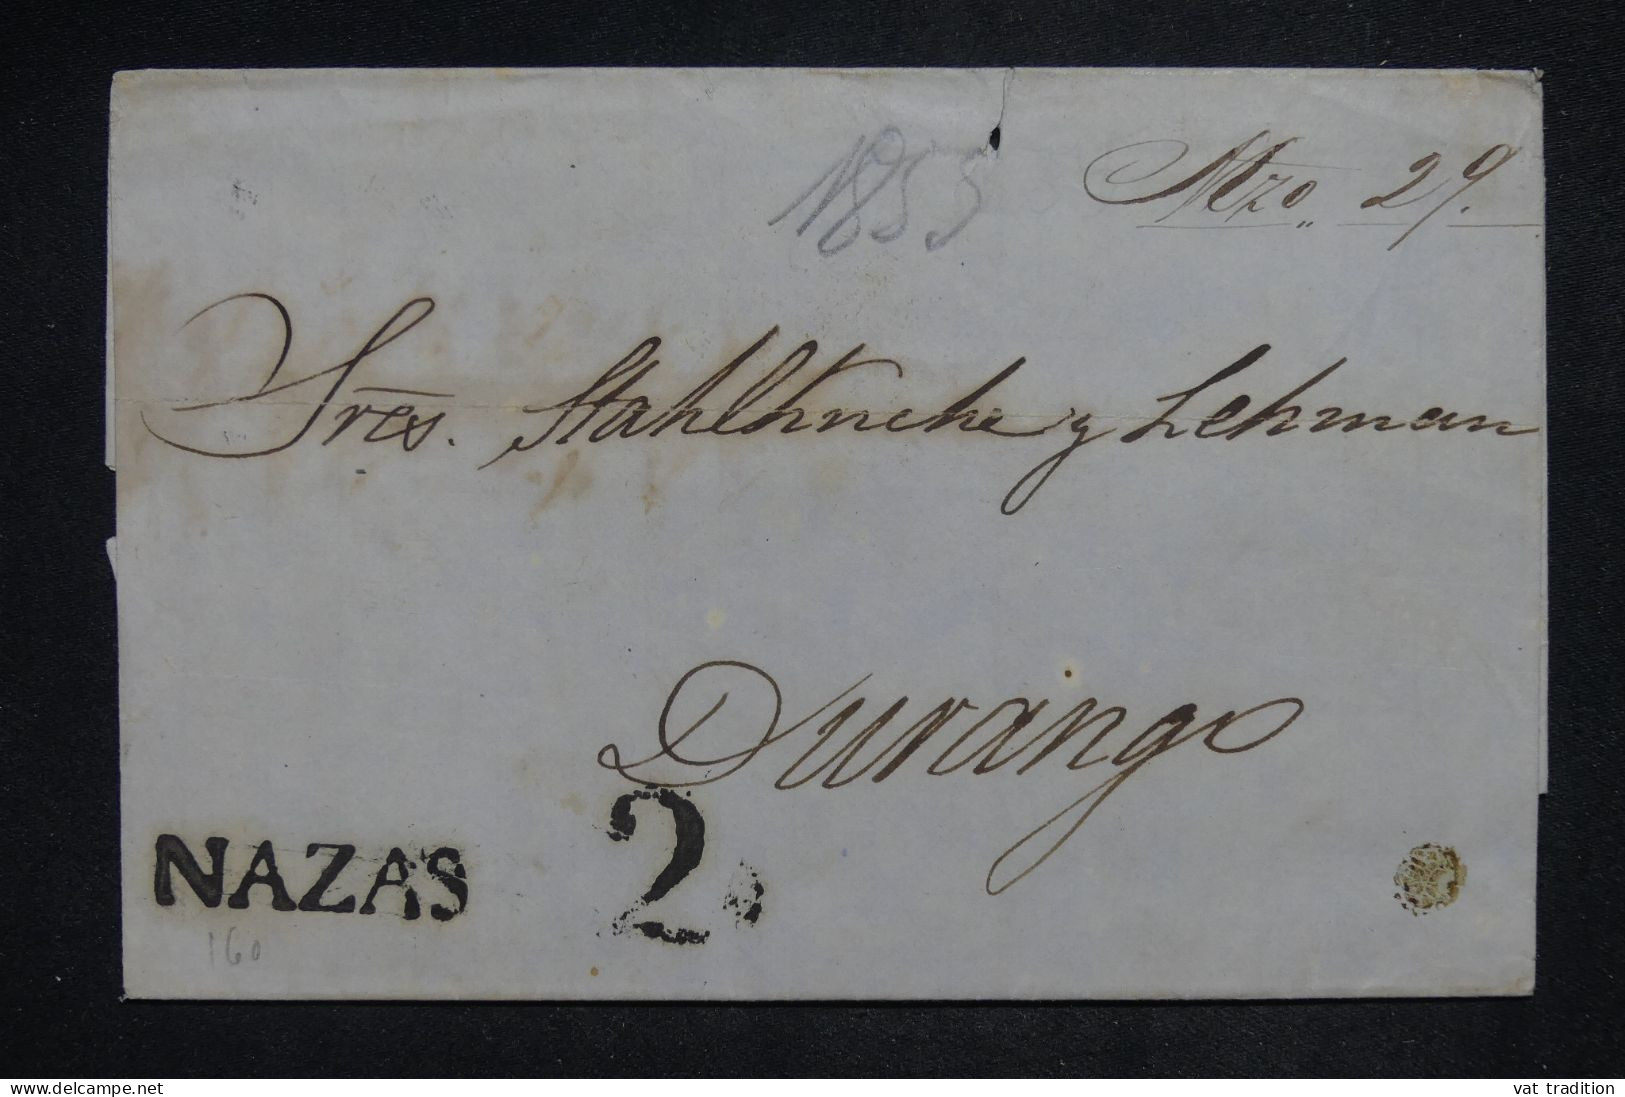 1855
Mzo 29.
Sres. Stahlknecht y Lehman
Durango
NAZAS 2
160
delcampe.net
vat tradition